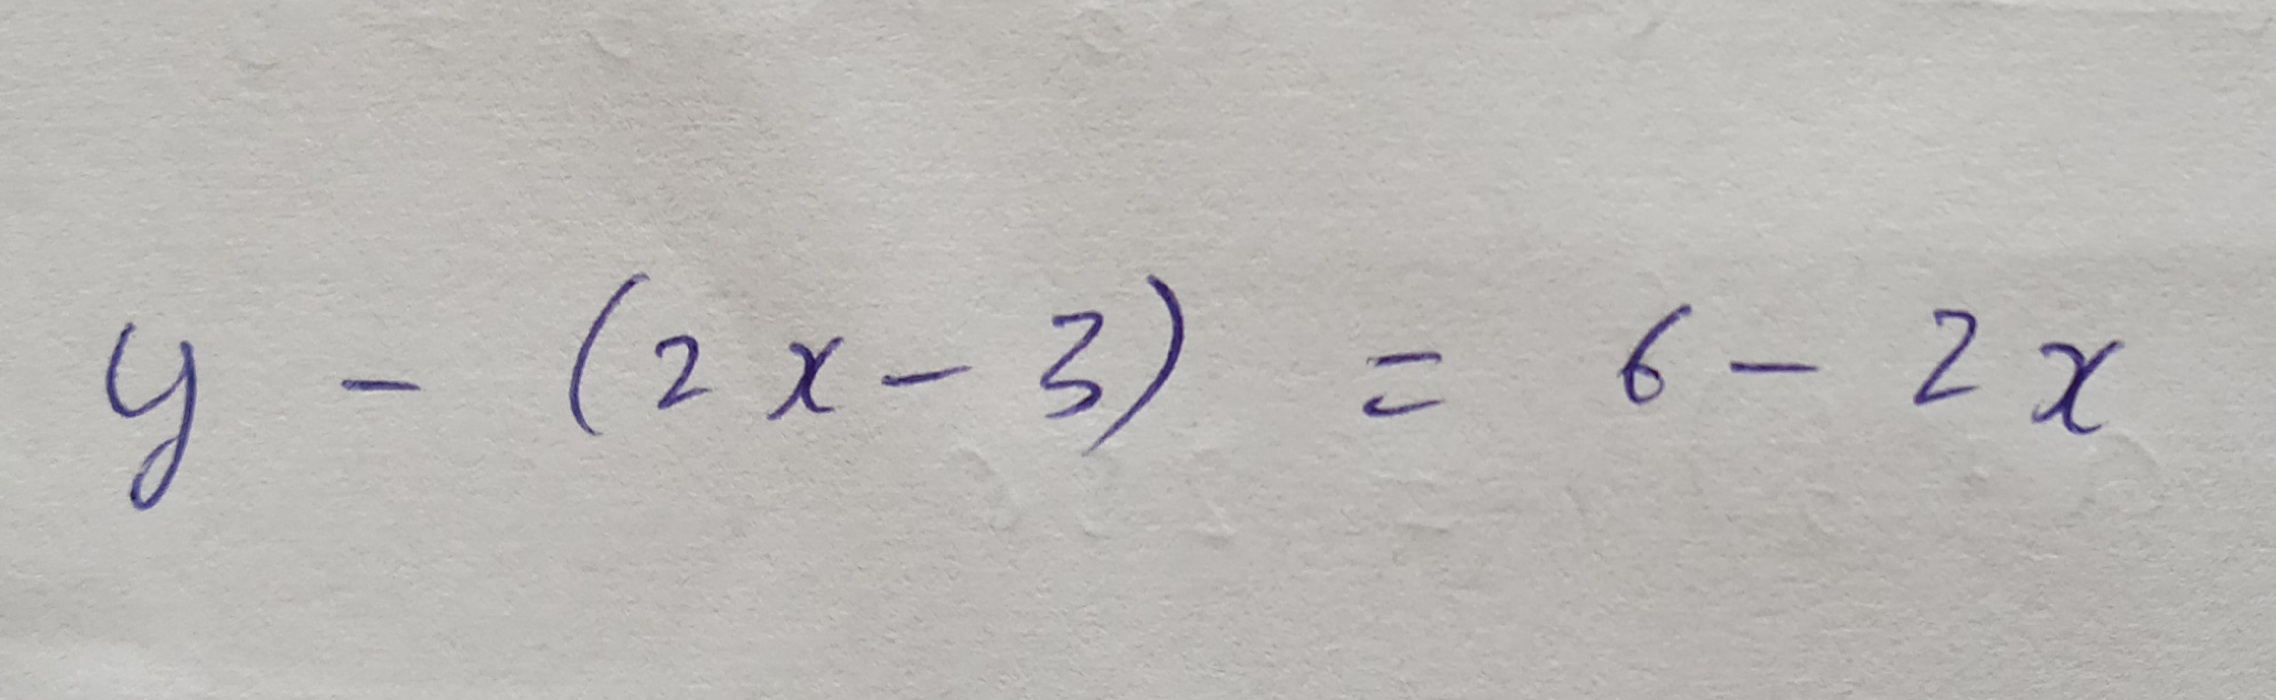 y - (2x - 3) = 6 - 2x